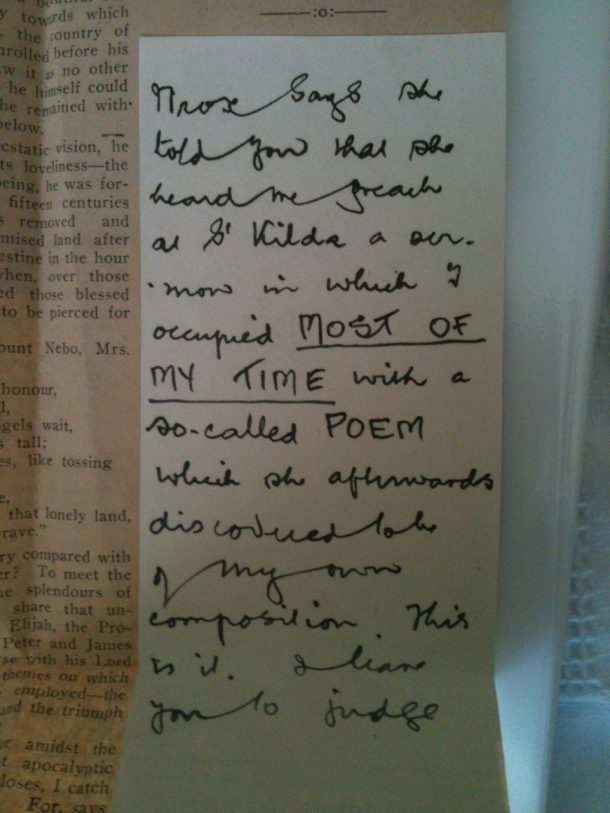 towards which
the country of
nrolled before his
w it as no other
he himself could
he remained with-
below.
cstatic vision, he
ts loveliness—the
eing, he was for-
fifteen centuries
s removed and
mised land after
estine in the hour
when, over those
ed those blessed
to be pierced for
ount Nebo, Mrs.
honour,
l,
gels wait,
s tall;
es, like tossing
e,
that lonely land,
rave."
ry compared with
er? To meet the
e splendours of
share that un-
Elijah, the Pro-
Peter and James
se with his Lord
themes on which
employed—the
and the triumph
amidst the
t apocalyptic
loses, I catch
For, says
:o:
says she
told you that she
heard me preach
at St Kilda a ser-
mon in which I
occupied MOST OF
MY TIME with a
so-called POEM
which she afterwards
discovered to be
of my own
composition. This
is it. I leave
you to judge